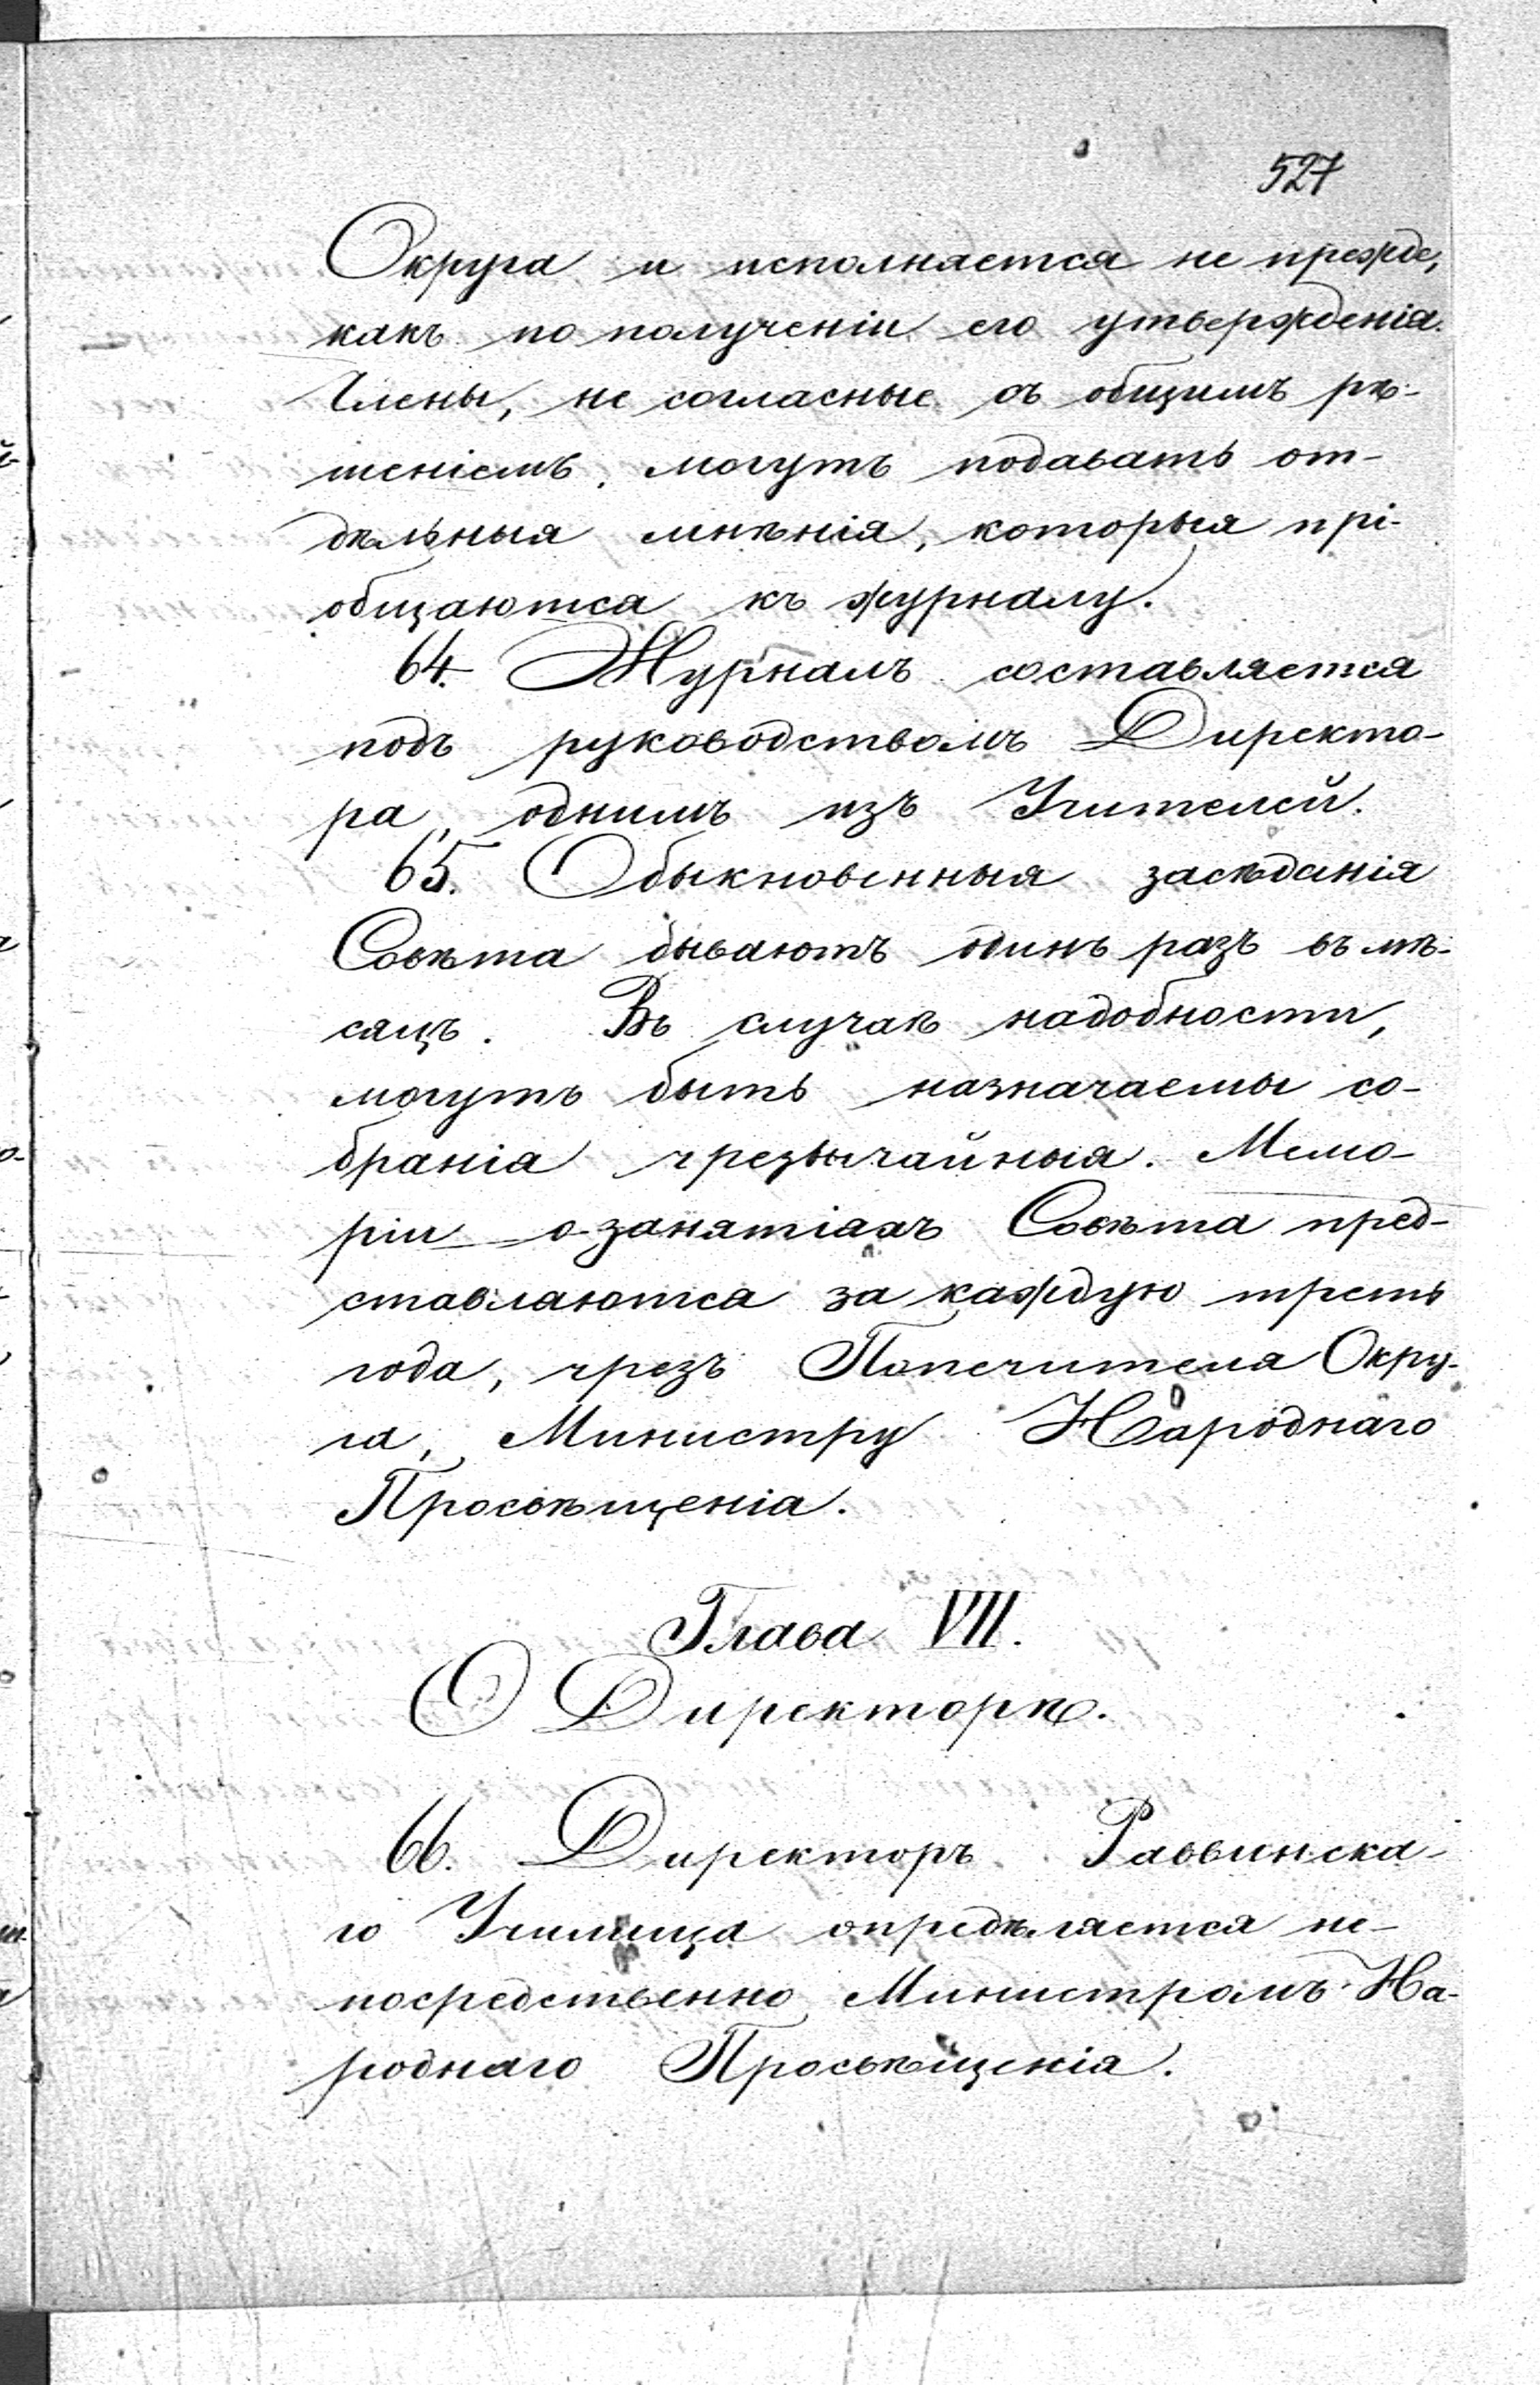 527
Округа и исполняется не прежде,
какъ по полученіи его утвержденія.
Члены, не согласные съ общимъ рѣ-
шеніемъ, могутъ подавать от-
дѣльныя мнѣнія, которыя прі-
общаются къ журналу.
64. Журналъ составляется
подъ руководствомъ Директо-
ра, однимъ изъ Учителей.
65. Обыкновенныя засѣданія
Совѣта бываютъ одинъ разъ въ мѣ-
сяцъ. Въ случаѣ надобности,
могутъ быть назначаемы со-
бранія чрезвычайныя. Мемо-
ріи о занятіяхъ Совѣта пред-
ставляются за каждую треть
года, чрезъ Попечителя Окру-
га, Министру Народнаго
Просвѣщенія.
Глава VII.
О Директорѣ.
66. Директоръ Раввинска-
го Училища опредѣляется не-
посредственно Министромъ На-
роднаго Просвѣщенія.